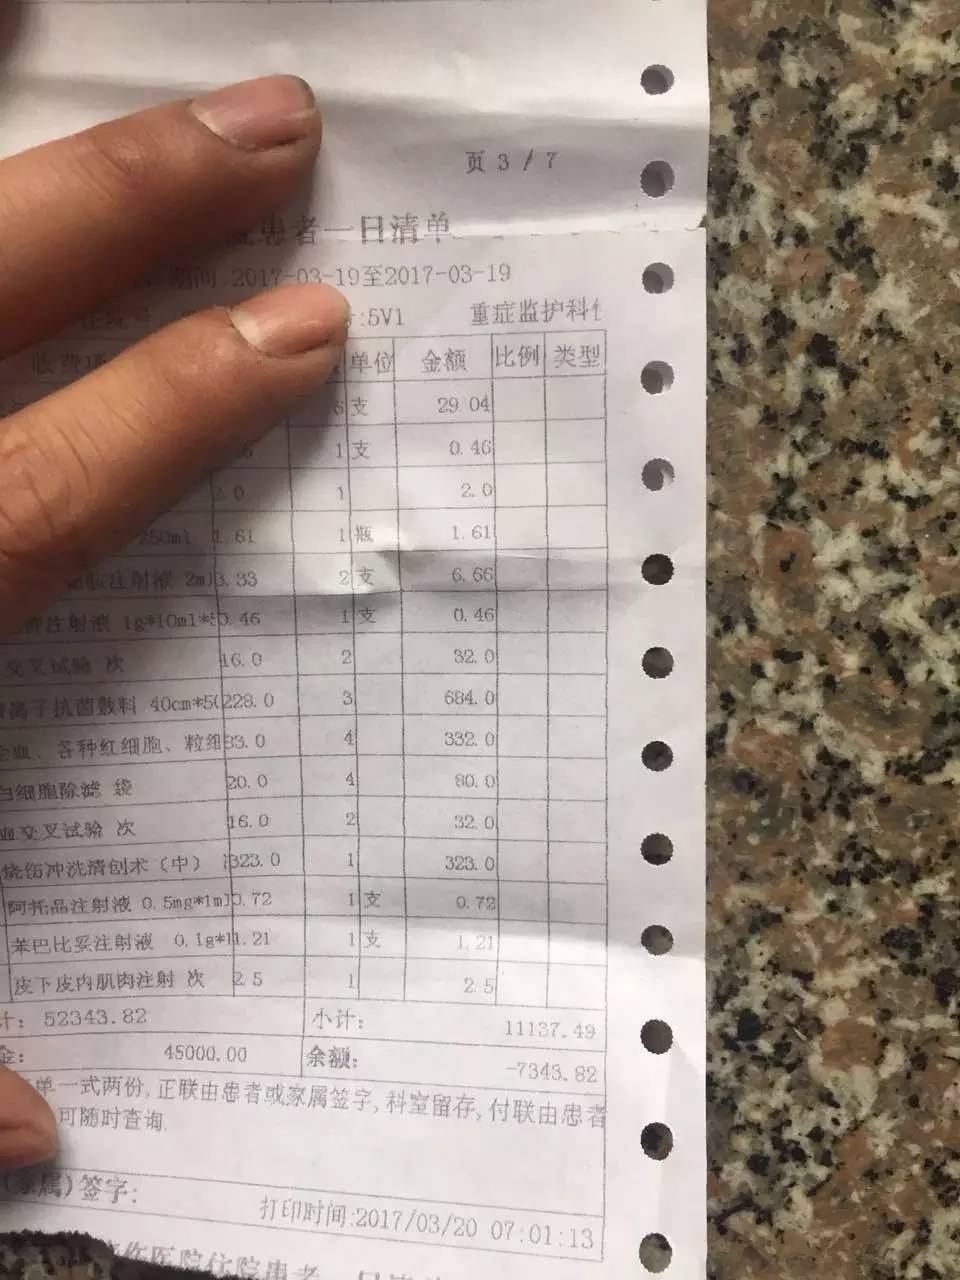 页 3 / 7
患者一日清单
期间 2017-03-19至2017-03-19
:5V1 重症监护科
收费 单位 金额 比例 类型
6 支 29.04
1 支 0.46
2.0 1 2.0
250ml 1.61 1 瓶 1.61
注射液 2ml 3.33 2 支 6.66
注射液 1g*10ml* 0.46 1 支 0.46
交叉试验 次 16.0 2 32.0
离子抗菌敷料 40cm*50 228.0 3 684.0
全血、各种红细胞、粒细 83.0 4 332.0
白细胞除滤 袋 20.0 4 80.0
血交叉试验 次 16.0 2 32.0
烧伤冲洗清创术（中） 323.0 1 323.0
阿托品注射液 0.5mg*1ml 0.72 1 支 0.72
苯巴比妥注射液 0.1g* 1.21 1 支 1.21
皮下皮内肌肉注射 次 2.5 1 2.5
计: 52343.82 小计: 11137.49
金: 45000.00 余额: -7343.82
单一式两份,正联由患者或家属签字,科室留存,付联由患者
可随时查询.
(家属)签字:
打印时间:2017/03/20 07:01:13
伤医院住院患者一日清单